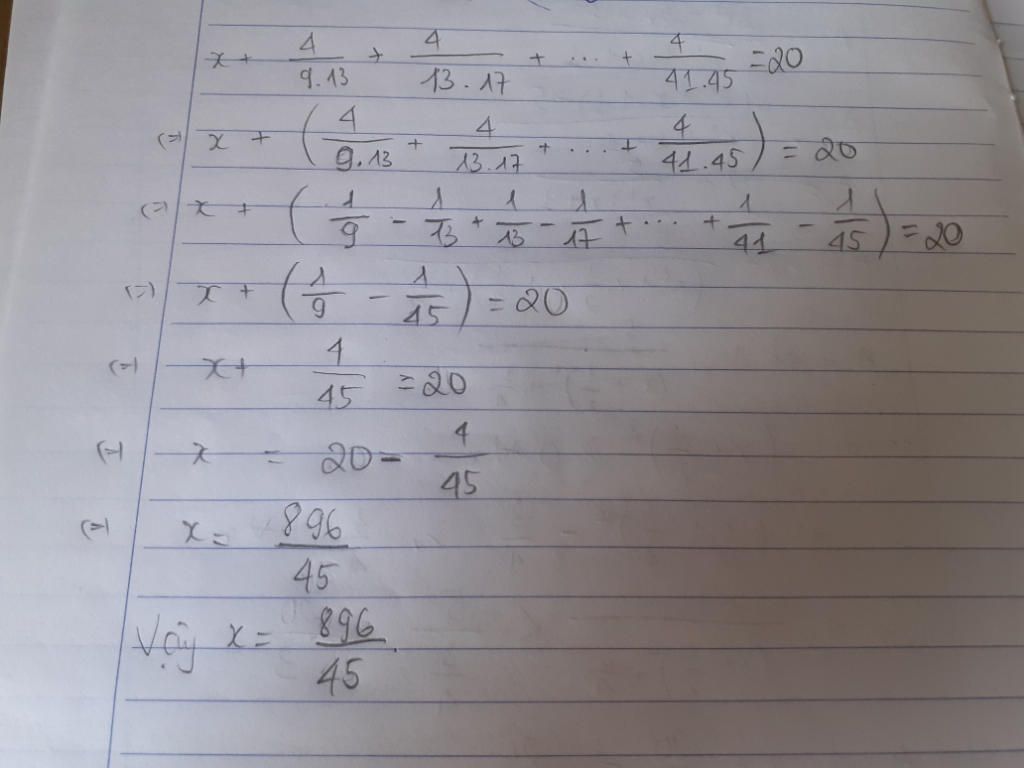 x + 4/9.13 + 4/13.17 + ... + 4/41.45 = 20
(=) x + (4/9.13 + 4/13.17 + ... + 4/41.45) = 20
(=) x + (1/9 - 1/13 + 1/13 - 1/17 + ... + 1/41 - 1/45) = 20
(=) x + (1/9 - 1/45) = 20
(=) x + 4/45 = 20
(=) x = 20 - 4/45
(=) x = 896/45
Vậy x = 896/45.